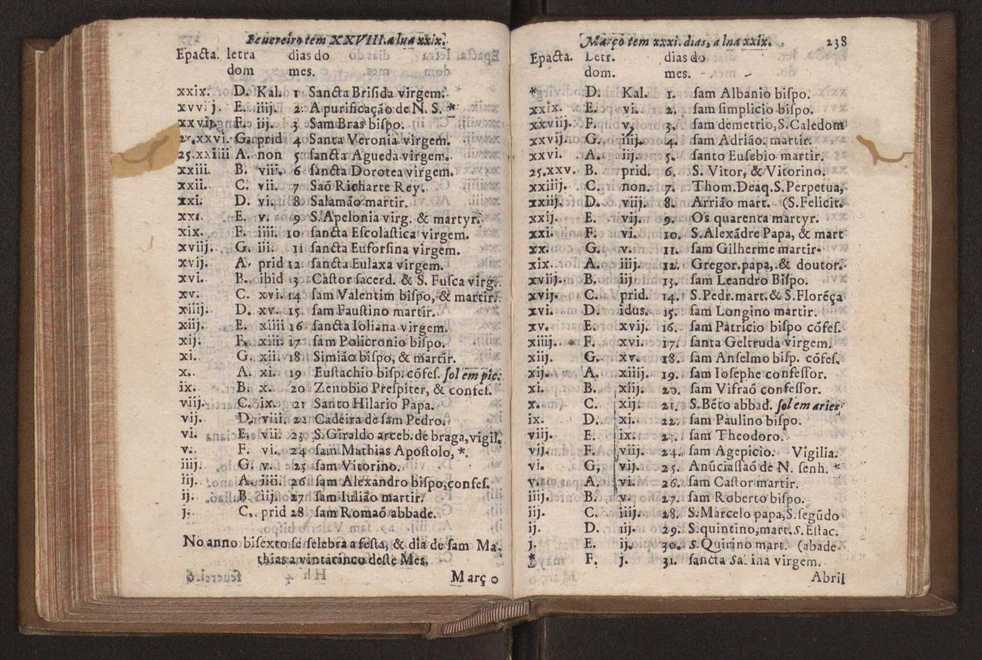 Feuereiro tem XXVIII. a lua xxix.
Epacta. letra dias do
dom mes.
xxix. D. Kal. 1 Sancta Brisida virgem.
xxvii j. E. iiij. 2 A purificação de N. S. *
F. iij. 3 Sam Bras bispo.
G. prid 4 Santa Veronia virgem.
25.xxiiii A. non 5 sancta Agueda virgem.
xxiii. B. viii. 6 sancta Dorotea virgem.
xxii. C. vii. 7 Saõ Richarte Rey.
xxi. D. vi. 8 Salamão martir.
xxi. E. v. 9 S. Apelonia virg. & martyr.
xix. F. iiii. 10 sancta Escolastica virgem.
xviij. G. iii. 11 sancta Euforsina virgem.
xvij. A. prid 12 sancta Eulaxa virgem.
xvi. B. ibid 13 Castor sacerd. & S. Fusca virg.
xv. C. xvi. 14 sam Valentim bispo, & martir.
xiiij. D. xv. 15 sam Faustino martir.
xiij. E. xiiii 16 sancta Ioliana virgem.
xij. F. xiii 17 sam Policronio bispo.
xi. G. xii. 18 Simião bispo, & martir.
x. A. xi. 19 Eustachio bisp. cõfes. sol em pic:
ix. B. x. 20 Zenobio Prespiter, & confes.
viij. C. ix. 21 Santo Hilario Papa.
vij. D. viii. 22 Cadeira de sam Pedro.
vi. E. vii. 23 S. Giraldo arceb. de braga, vigil.
v. F. vi. 24 sam Mathias Apostolo, *.
iiij. G. v. 25 sam Vitorino.
iij. A. iiii. 26 sam Alexandro bispo, confes.
ij. B iij. 27 sam Iulião martir.
j. C. prid 28 sam Romaõ abbade.
No anno bisexto se selebra a festa, & dia de sam Ma-
thias a vintacinco deste Mes.
Março
Março tem xxxi. dias, a lua xxix. 238
Epacta. Letr. dias do
dom. mes.
* D. Kal. 1. sam Albanio bispo.
xxix. E. vi. 2. sam simplicio bispo.
xxviij. F. v. 3. sam demetrio, S. Caledom
xxvij. G. iiij. 4. sam Adrião. martir.
xxvi. A. iij. 5. santo Eusebio martir.
25.xxv. B. prid. 6. S. Vitor, & Vitorino.
xxiiij. C. non. 7. Thom. Deaq. S. Perpetua,
xxiij. D. viij. 8. Arrião mart. (S. Felicit.
xxij. E. vij. 9. Os quarenta martyr.
xxi. F. vi. 10. S. Alexãdre Papa, & mart
xx. G. v. 11. sam Gilherme martir.
xix. A. iiij. 12. Gregor. papa, & doutor.
xviij. B iij 13. sam Leandro Bispo.
xvij. C. prid. 14. S. Pedr. mart. & S. Florẽça
xvi. D. idus. 15. sam Longino martir.
xv. E. xvij. 16. sam Patricio bispo cõfes.
xiiij. F. xvi. 17. santa Geltruda virgem.
xiij. G. xv. 18. sam Anselmo bisp. cõfes.
xij. A. xiiij. 19. sam Iosephe confessor.
xi. B. xiij. 20. sam Visraõ confessor.
x. C. xij. 21. S. Bẽto abbad. sol em aries
ix. D. xi. 22. sam Paulino bispo.
viij. E. ix. 23. sam Theodoro.
vij. F. viij. 24. sam Agepicio. Vigilia.
vi. G, vij. 25. Anũciasaõ de N. senh. *
v. A. vi. 26. sam Castor martir.
iiij. B. v. 27. sam Roberto bispo.
iij. C. iiij. 28. S. Marcelo papa, S. segũdo
ij. D. iij. 29. S. quintino, mart. S. Estac.
j. E. ij. 30. S. Quirino mart. (abade
* F. j. 31. sancta Sabina virgem.
Abril